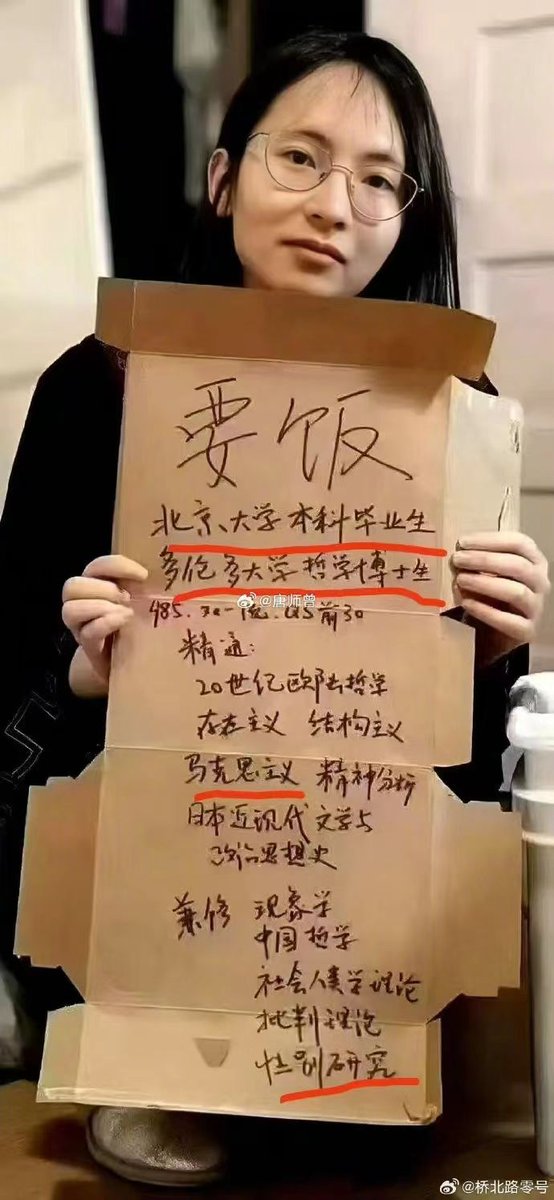 要饭
北京大学本科毕业生
多伦多大学哲学博士生
@唐师曾
985.双一流.QS前30
精通:
20世纪欧陆哲学
存在主义 结构主义
马克思主义 精神分析
日本近现代文学与
政治思想史
兼修 现象学
中国哲学
社会人类学理论
批判理论
性别研究
@桥北路零号